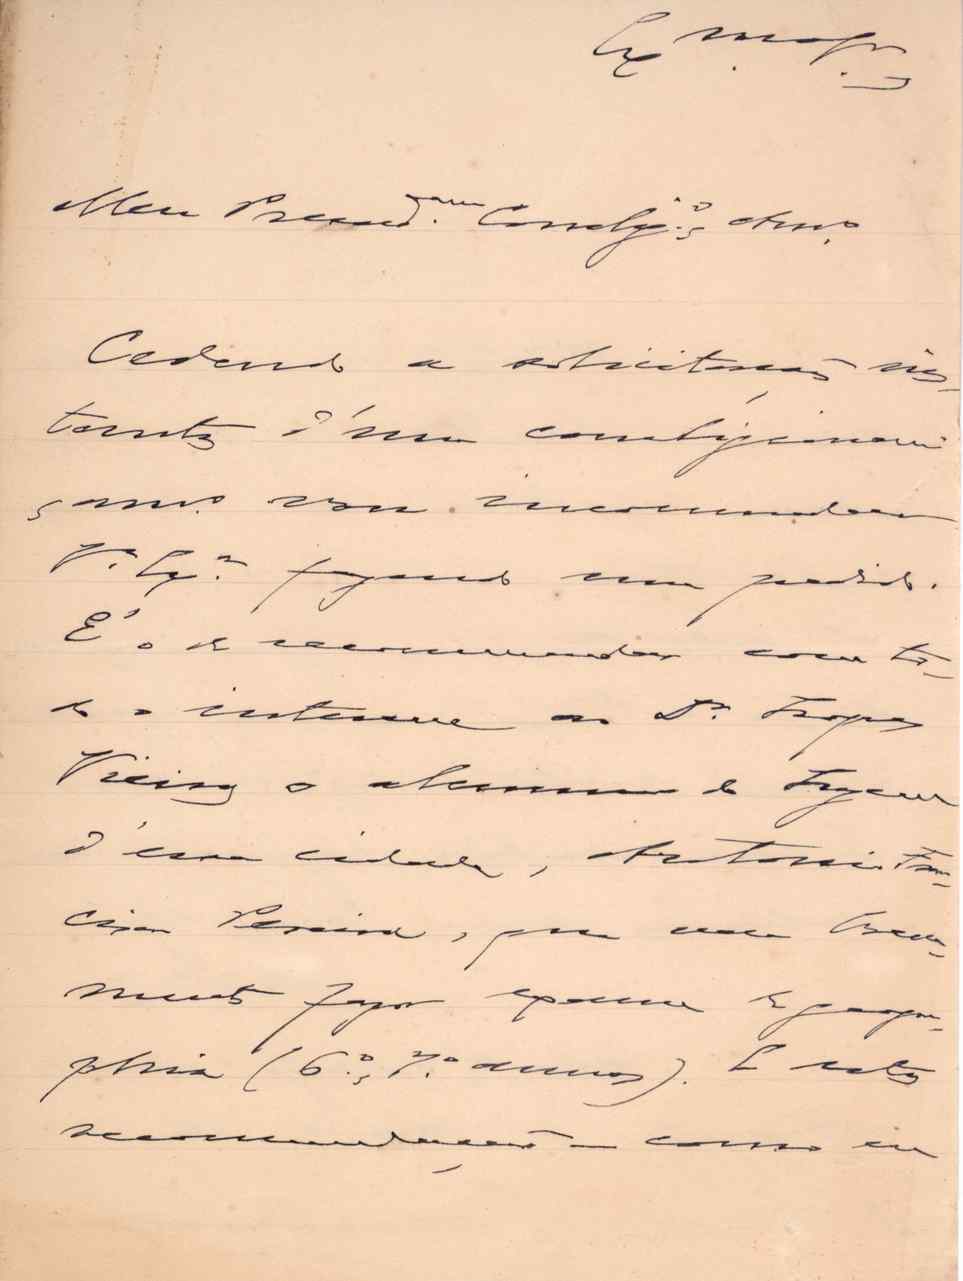 Ex.mo Sr.
Meu Presad.mo Correlig.o e Am.o
Cedendo a solicitação ins-
tante d'um correligionario
e am.o vou incommodar
V.a Ex.a fazendo um pedido.
É o de recommendar com to-
do o interesse ao Dr. Lopes
Vieira o alumno do Lyceu
d'essa cidade, Antonio Fran-
cisco Pereira, que vae breve-
mente fazer exame de geogra-
phia (6.o e 7.o annos). E esta
recommendação - como eu